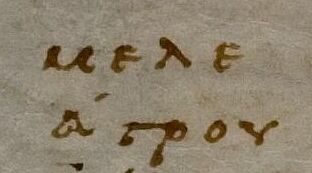 μελε
άγρου